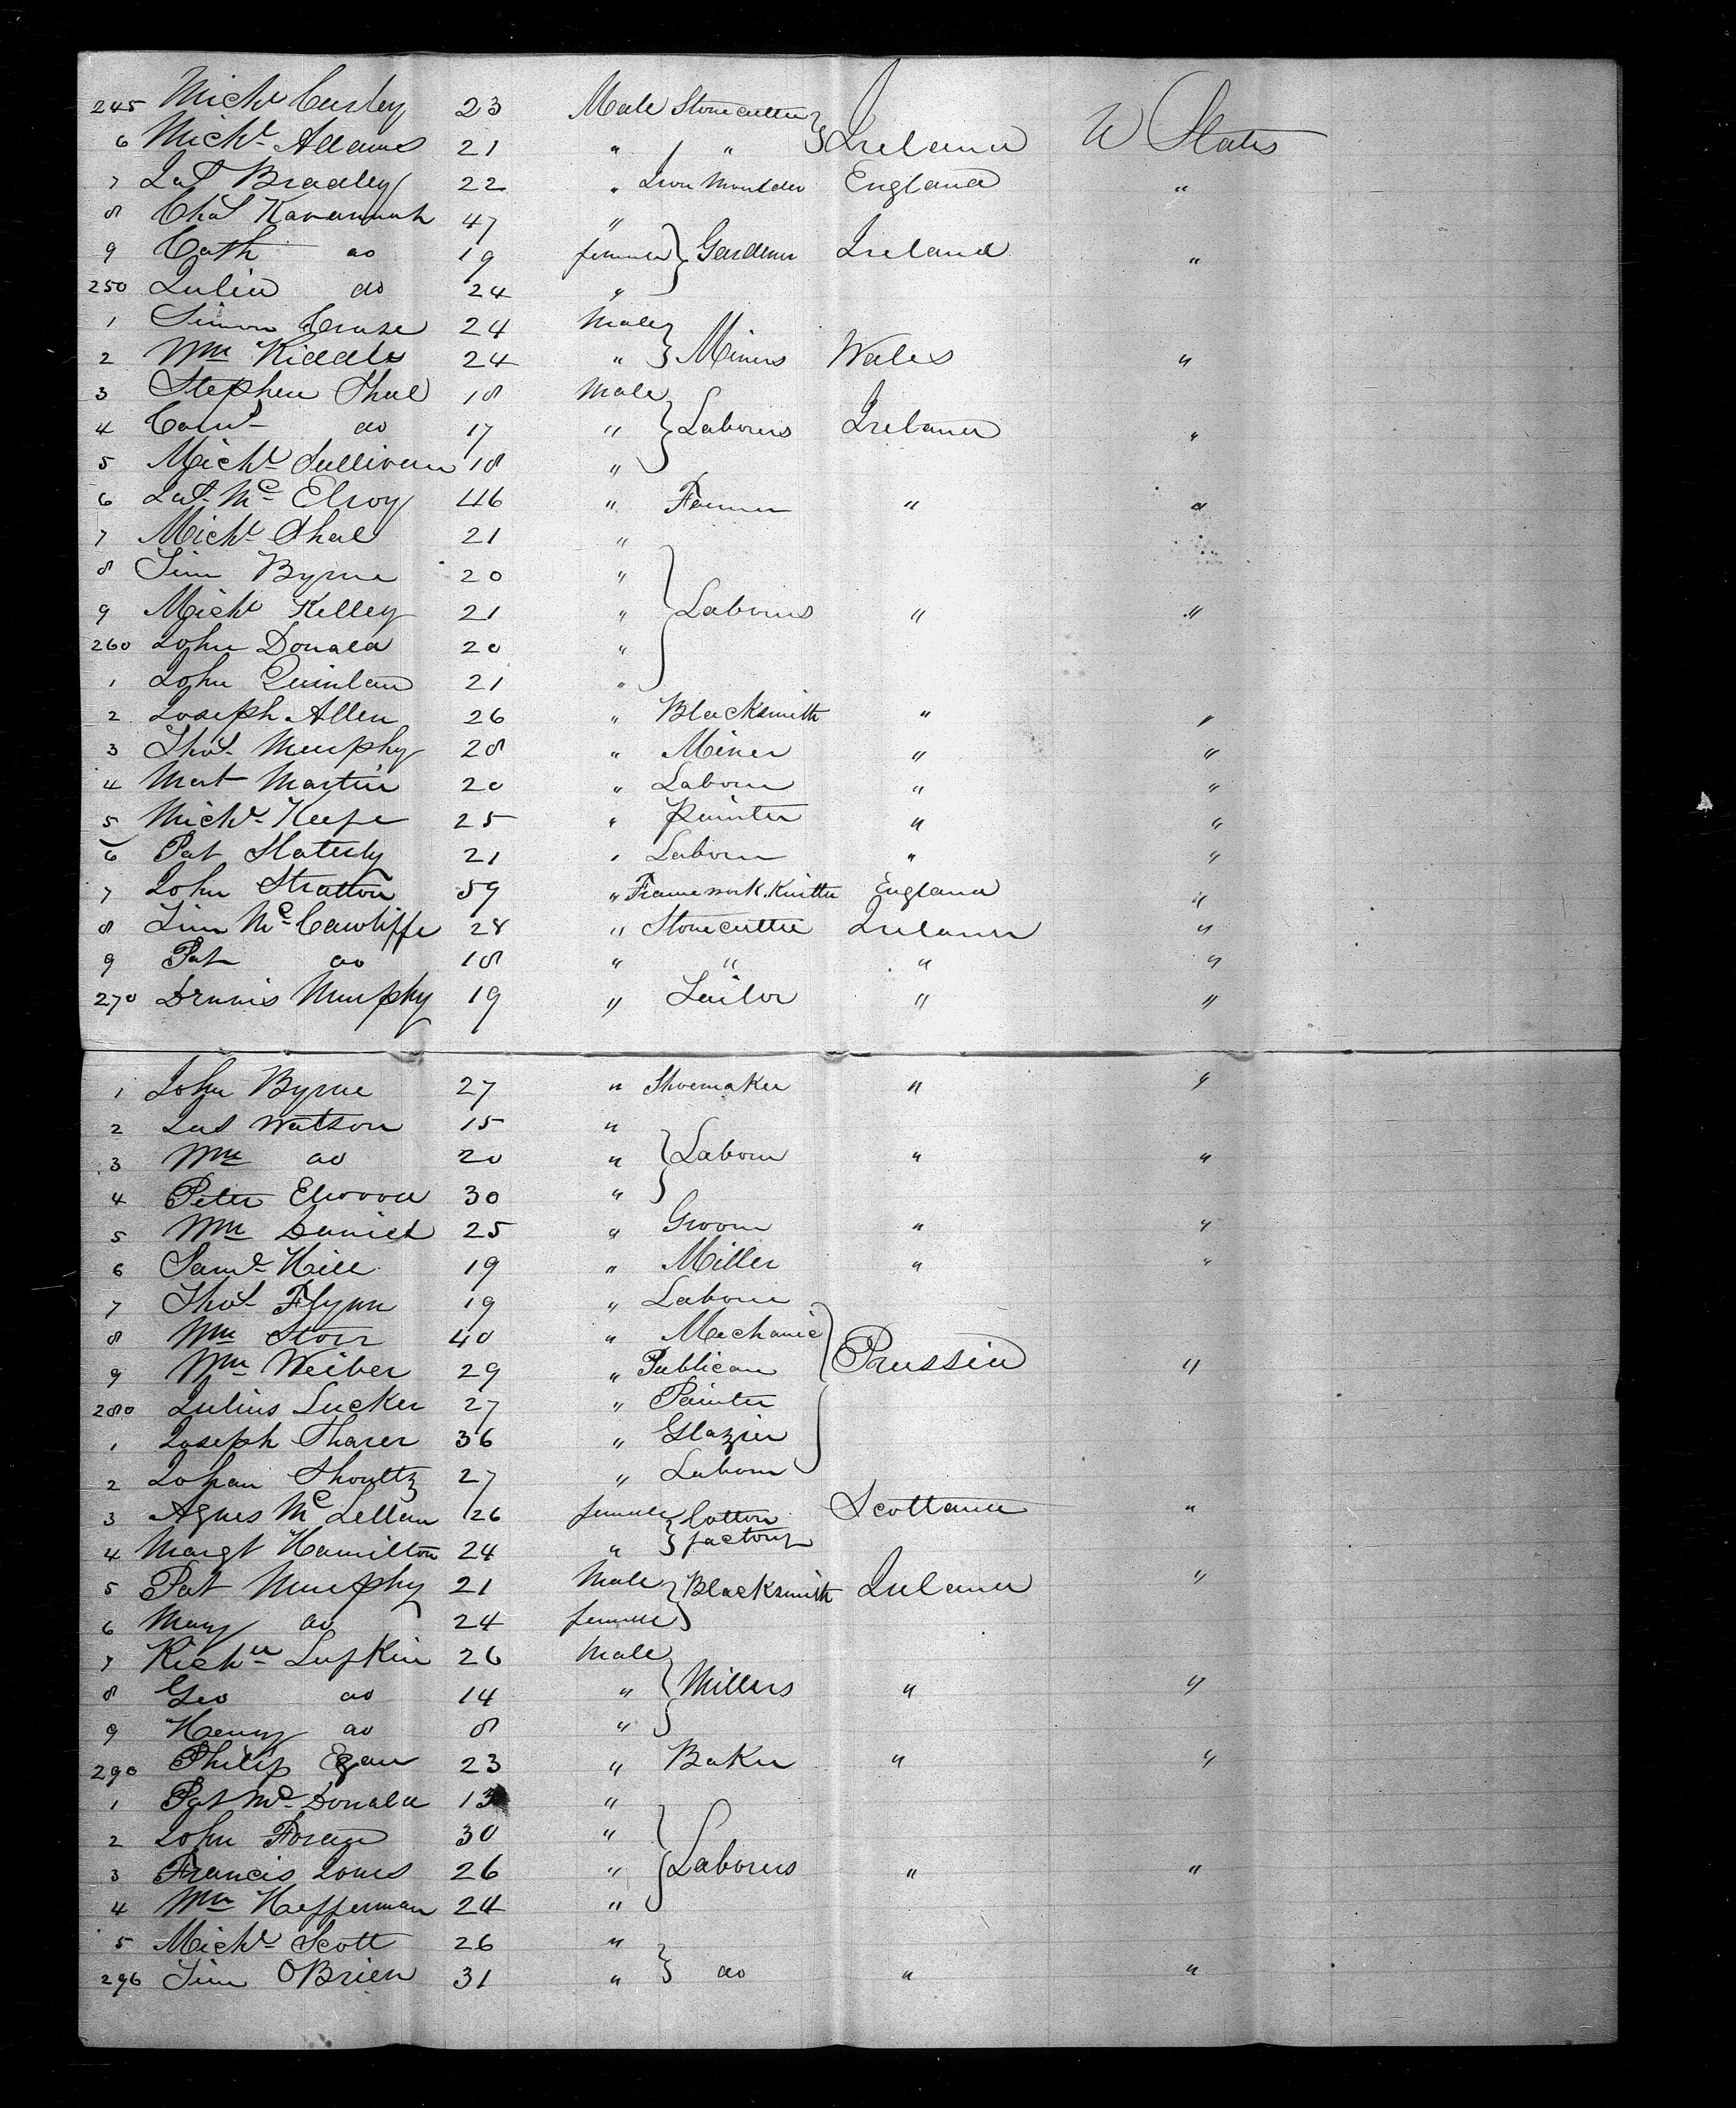 245 Mich<sup>l</sup> Curley 23 Male Stonecutter } Ireland U States
6 Mich<sup>l</sup> Adams 21 " "
7 Ja<sup>s</sup> Bradley 22 " Iron Moulder England "
8 Cha<sup>s</sup> Kavannah 47 "
9 Cath do 19 female } Gardener Ireland "
250 Julia do 24 "
1 Simon Cruse 24 Male
2 W<sup>m</sup> Kiddle 24 " } Miners Wales "
3 Stephen Shal 18 Male
4 do 17 " } Laborers Ireland "
5 Mich<sup>l</sup> Sullivan 18 "
6 Ja<sup>s</sup> M<sup>c</sup>Elroy 46 " Farmer " "
7 Mich<sup>l</sup> Shal 21 "
8 Tim Byrne 20 "
9 Mich<sup>l</sup> Kelley 21 " } Laborers " "
260 John Donald 20 "
1 John Quinlan 21 "
2 Joseph Allen 26 " Blacksmith " "
3 Tho<sup>s</sup> Murphy 28 " Miner " "
4 Mart Martin 20 " Laborer " "
5 Mich<sup>l</sup> Keefe 25 " Painter " "
6 Pat Slaterly 21 " Laborer " "
7 John Stratton 59 " Framework Knitter England "
8 Tim M<sup>c</sup>Cawliffe 28 " Stonecutter Ireland "
9 Pat do 18 " " " "
270 Dennis Murphy 19 " Tailor " "
1 John Byrne 27 " Shoemaker " "
2 Jas Watson 15 "
3 W<sup>m</sup> do 20 " } Laborer " "
4 Peter Elwood 30 "
5 W<sup>m</sup> Daniel 25 " Groom " "
6 Sam<sup>l</sup> Hill 19 " Miller " "
7 Tho<sup>s</sup> Flynn 19 " Laborer
8 W<sup>m</sup> Storr 40 " Mechanic
9 W<sup>m</sup> Weiber 29 " Publican } Prussia "
280 Julius Lucker 27 " Painter
1 Joseph Tharer 36 " Glazier
2 Johan Shoultz 27 " Laborer
3 Agnes M<sup>c</sup>Lellan 26 female } Cotton factory Scotland "
4 Margt Hamilton 24 "
5 Pat Murphy 21 Male } Blacksmith Ireland "
6 Mary do 24 female
7 Rich<sup>d</sup> Lufkin 26 Male
8 Geo do 14 " } Millers " "
9 Henry do 8 "
290 Philip Egan 23 " Baker " "
1 Pat M<sup>c</sup>Donald 13 "
2 John 30 "
3 Francis Jones 26 " } Laborers " "
4 W<sup>m</sup> Hefferman 24 "
5 Mich<sup>l</sup> Scott 26 "
296 Tim OBrien 31 " } do " "